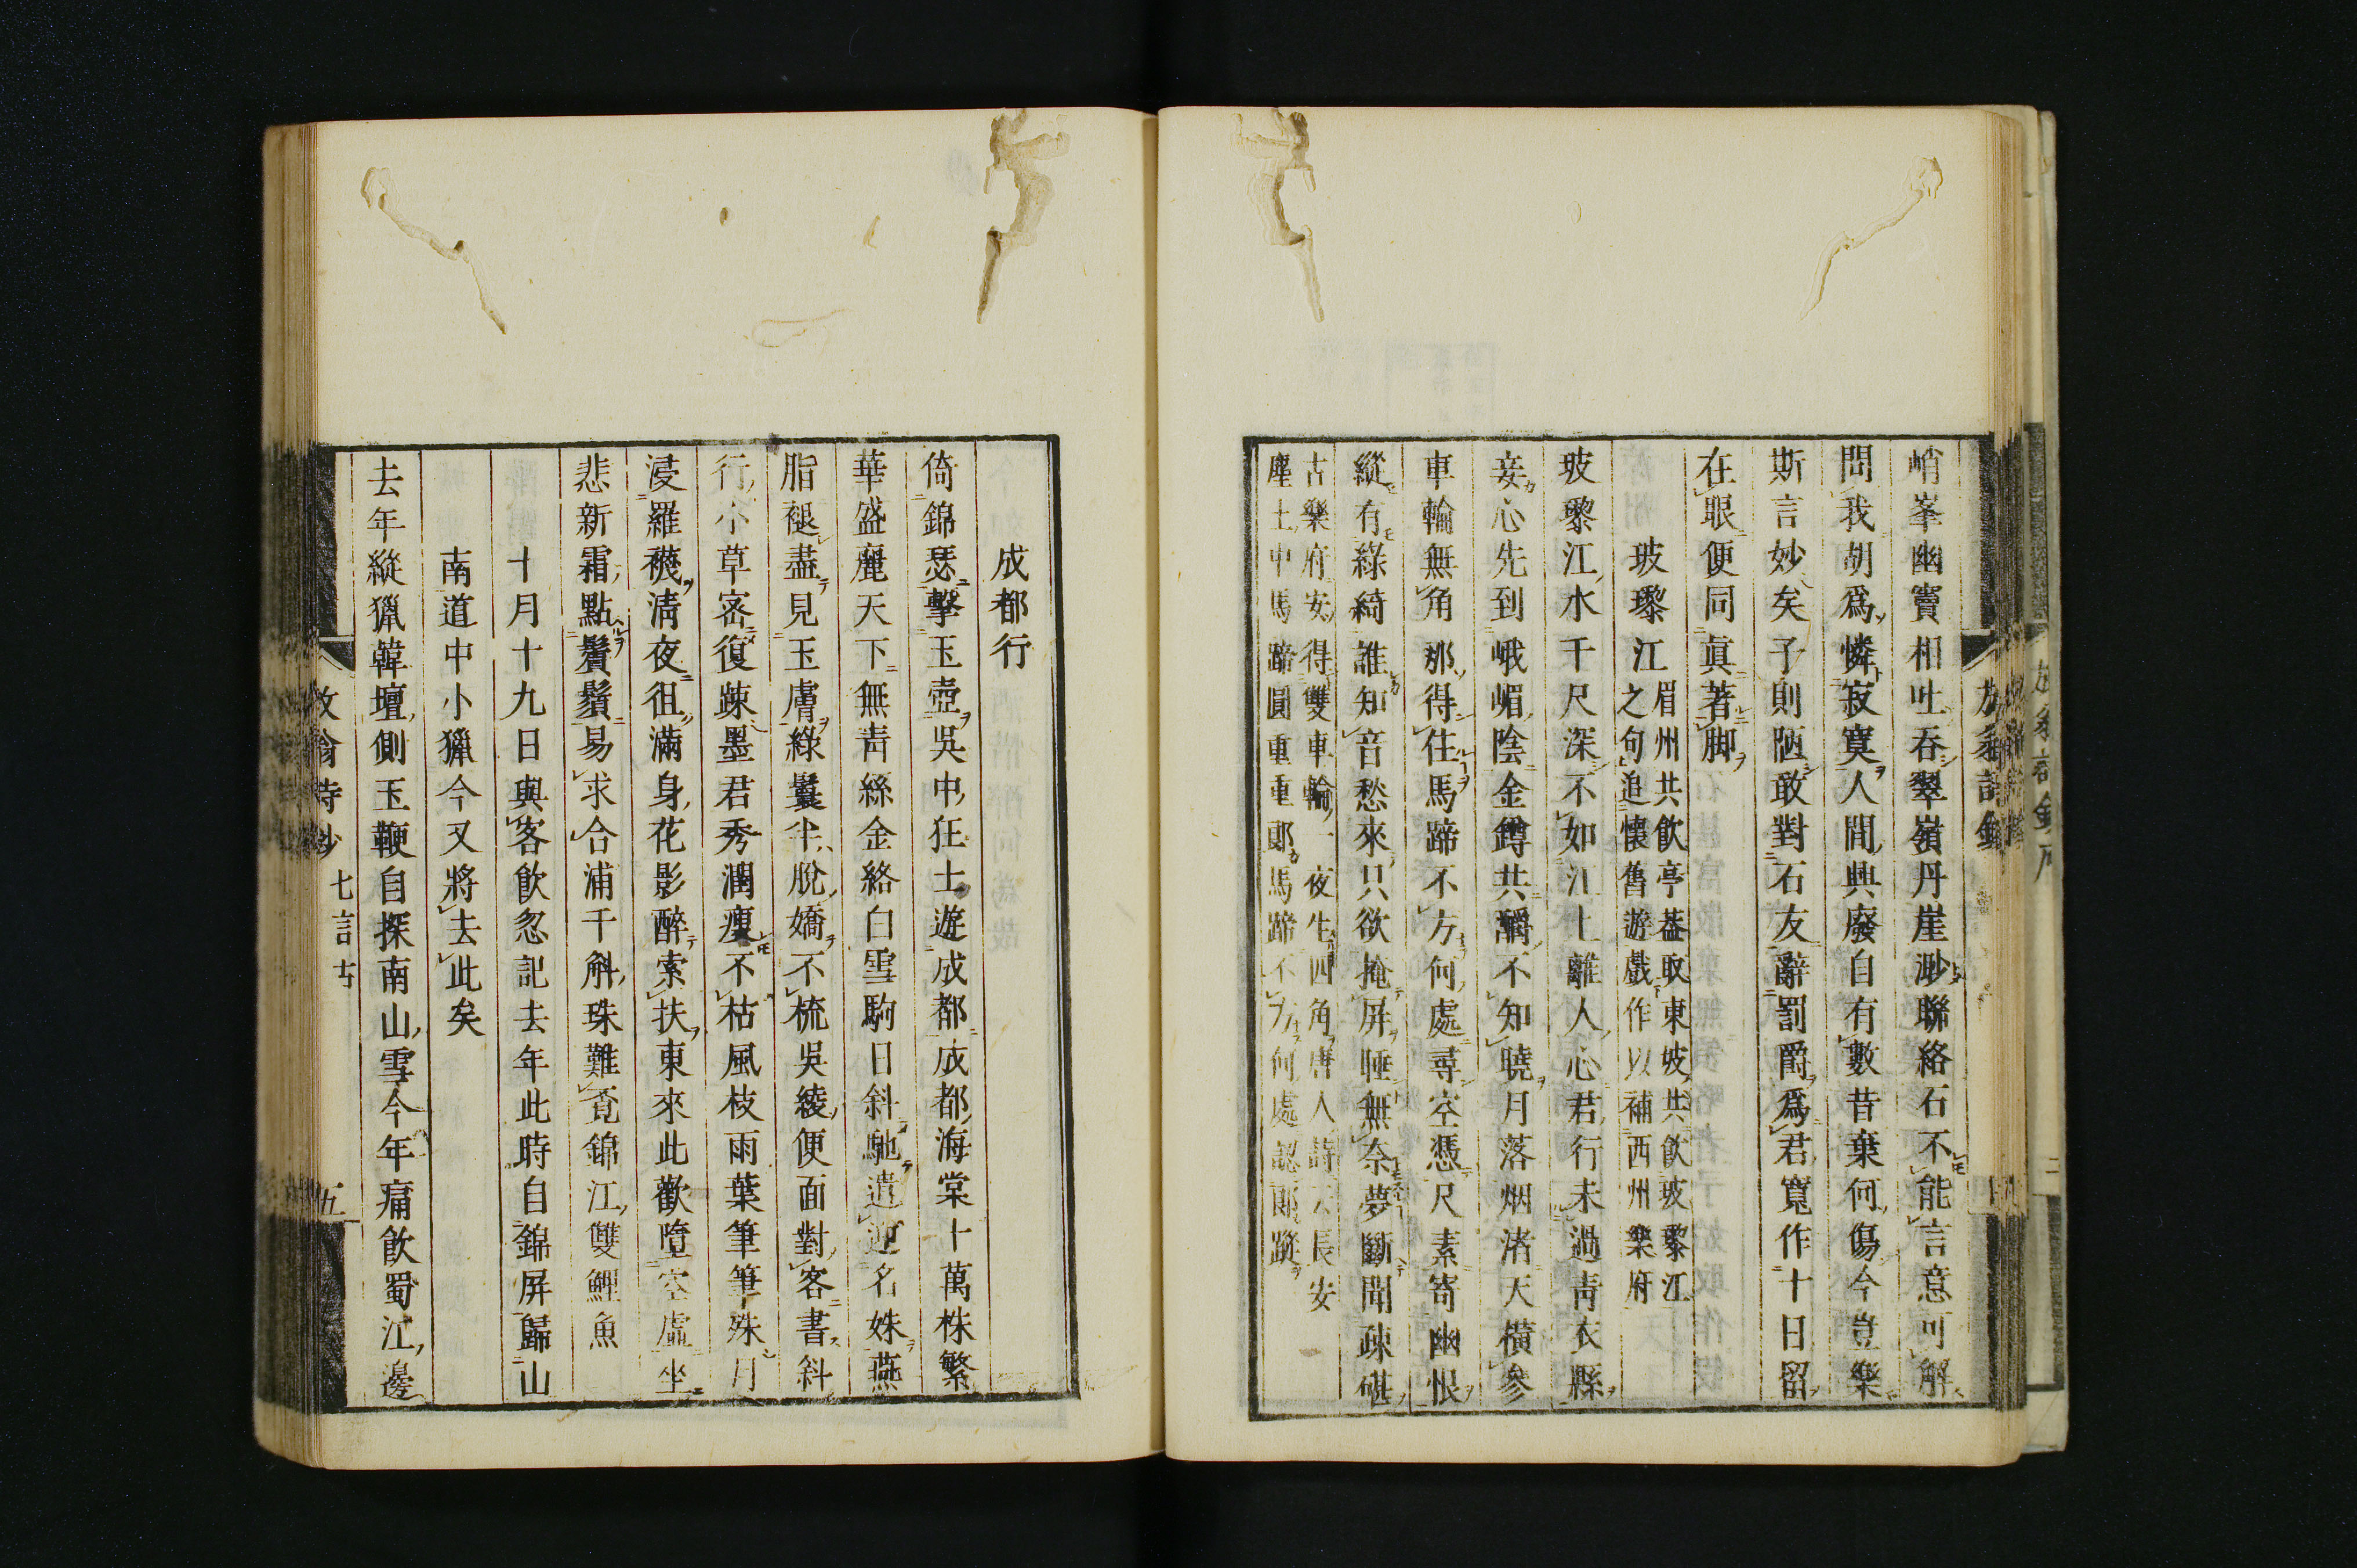 峭峯幽竇相吐吞翠嶺丹崖渺聯絡石不能言意可解
問我胡爲憐寂寞人間興廢自有數昔棄何傷今豈樂
斯言妙矣子則陋敢對石友辭罰爵爲君寬作十日留
在眼便同眞著脚
玻瓈江
眉州共飲亭葢取東坡共飲玻瓈江
之句追懷舊遊戲作以補西州樂府
玻瓈江水千尺深不如江上離人心君行未過青衣縣
妾心先到峨嵋陰金鐏共釂不知曉月落烟渚天橫參
車輪無角那得住馬蹄不方何處尋空憑尺素寄幽恨
縱有綠綺誰知音愁來只欲掩屏睡無奈夢斷聞疎碪
古樂府安得雙車輪一夜生四角唐人詩云長安
塵土中馬蹄圓重重郞馬蹄不方何處認郞蹤
成都行
倚錦瑟擊玉壺吳中狂士遊成都成都海棠十萬株繁
華盛麗天下無青絲金絡白雪駒日斜馳遣迎名姝燕
脂褪盡見玉膚綠鬟半脫嬌不梳吳綾便面對客書斜
行小草密復疎墨君秀潤瘦不枯風枝雨葉筆筆殊月
浸羅襪淸夜徂滿身花影醉索扶東來此歡墮空虛坐
悲新霜點鬢鬚易求合浦千斛珠難覓錦江雙鯉魚
十月十九日與客飲忽記去年此時自錦屏歸山
南道中小獵今又將去此矣
去年縱獵韓壇側玉鞭自探南山雪今年痛飲蜀江邊
放翁詩鈔
七言古
五